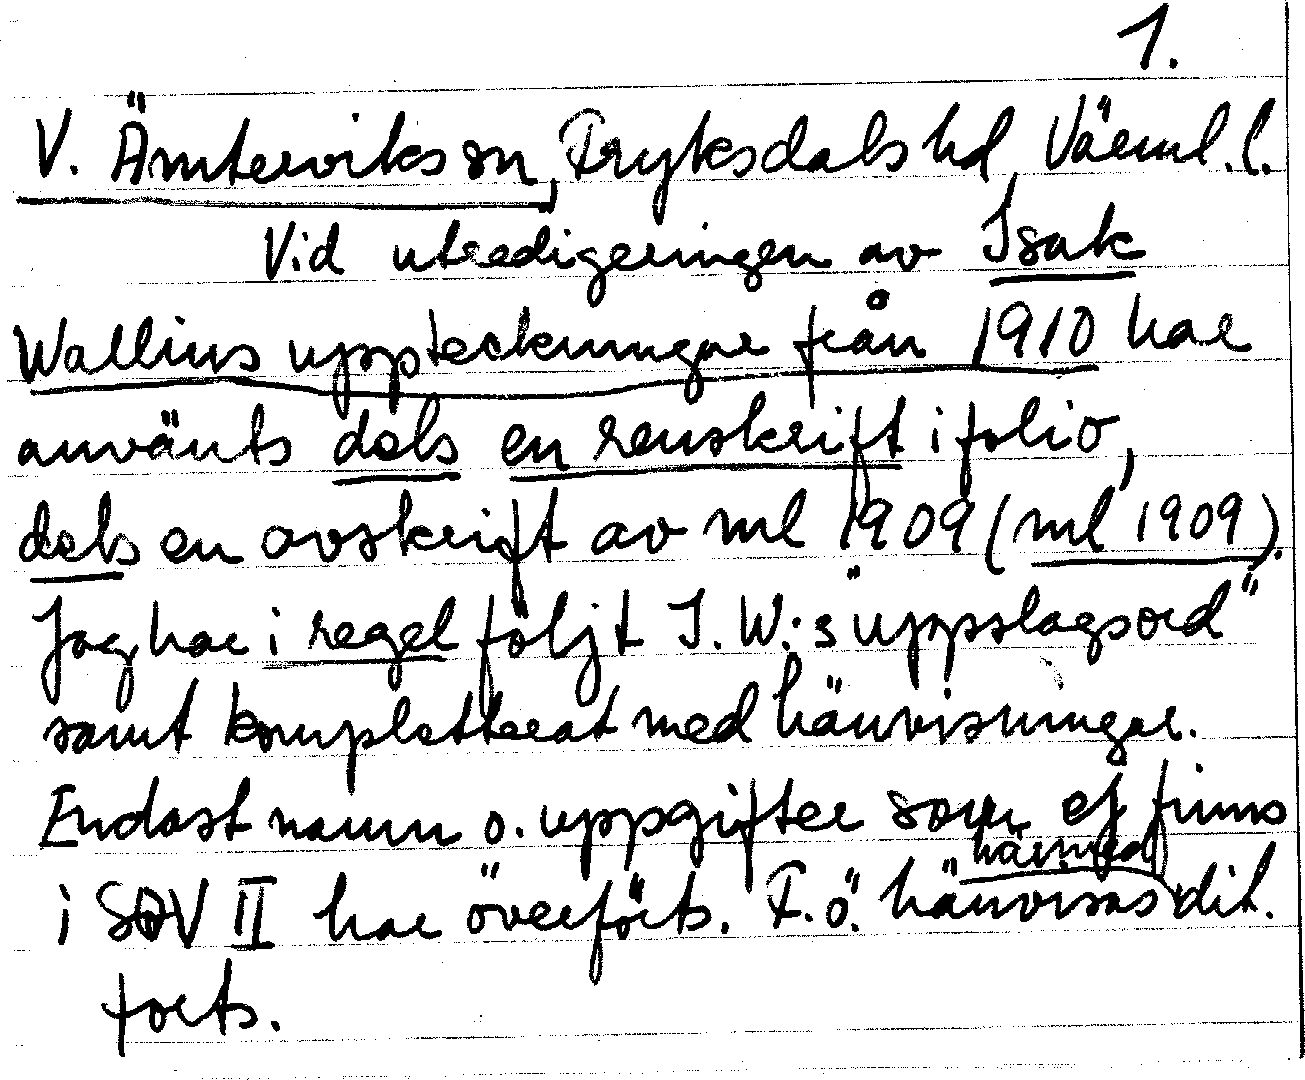 1.
V. Ämterviks sn, Fryksdals hd, Värml. l.
Vid utredigeringen av Isak
Wallius uppteckningar från 1910 har
använts dels en renskrift i folio,
dels en avskrift av ml 1909 (ml 1909).
Jag har i regel följt I. W:s "uppslagsord"
samt kompletterat med hänvisningar.
Endast namn o. uppgifter som ej finns
härmed
i SOV II har överförts. F.ö. hänvisas dit.
forts.